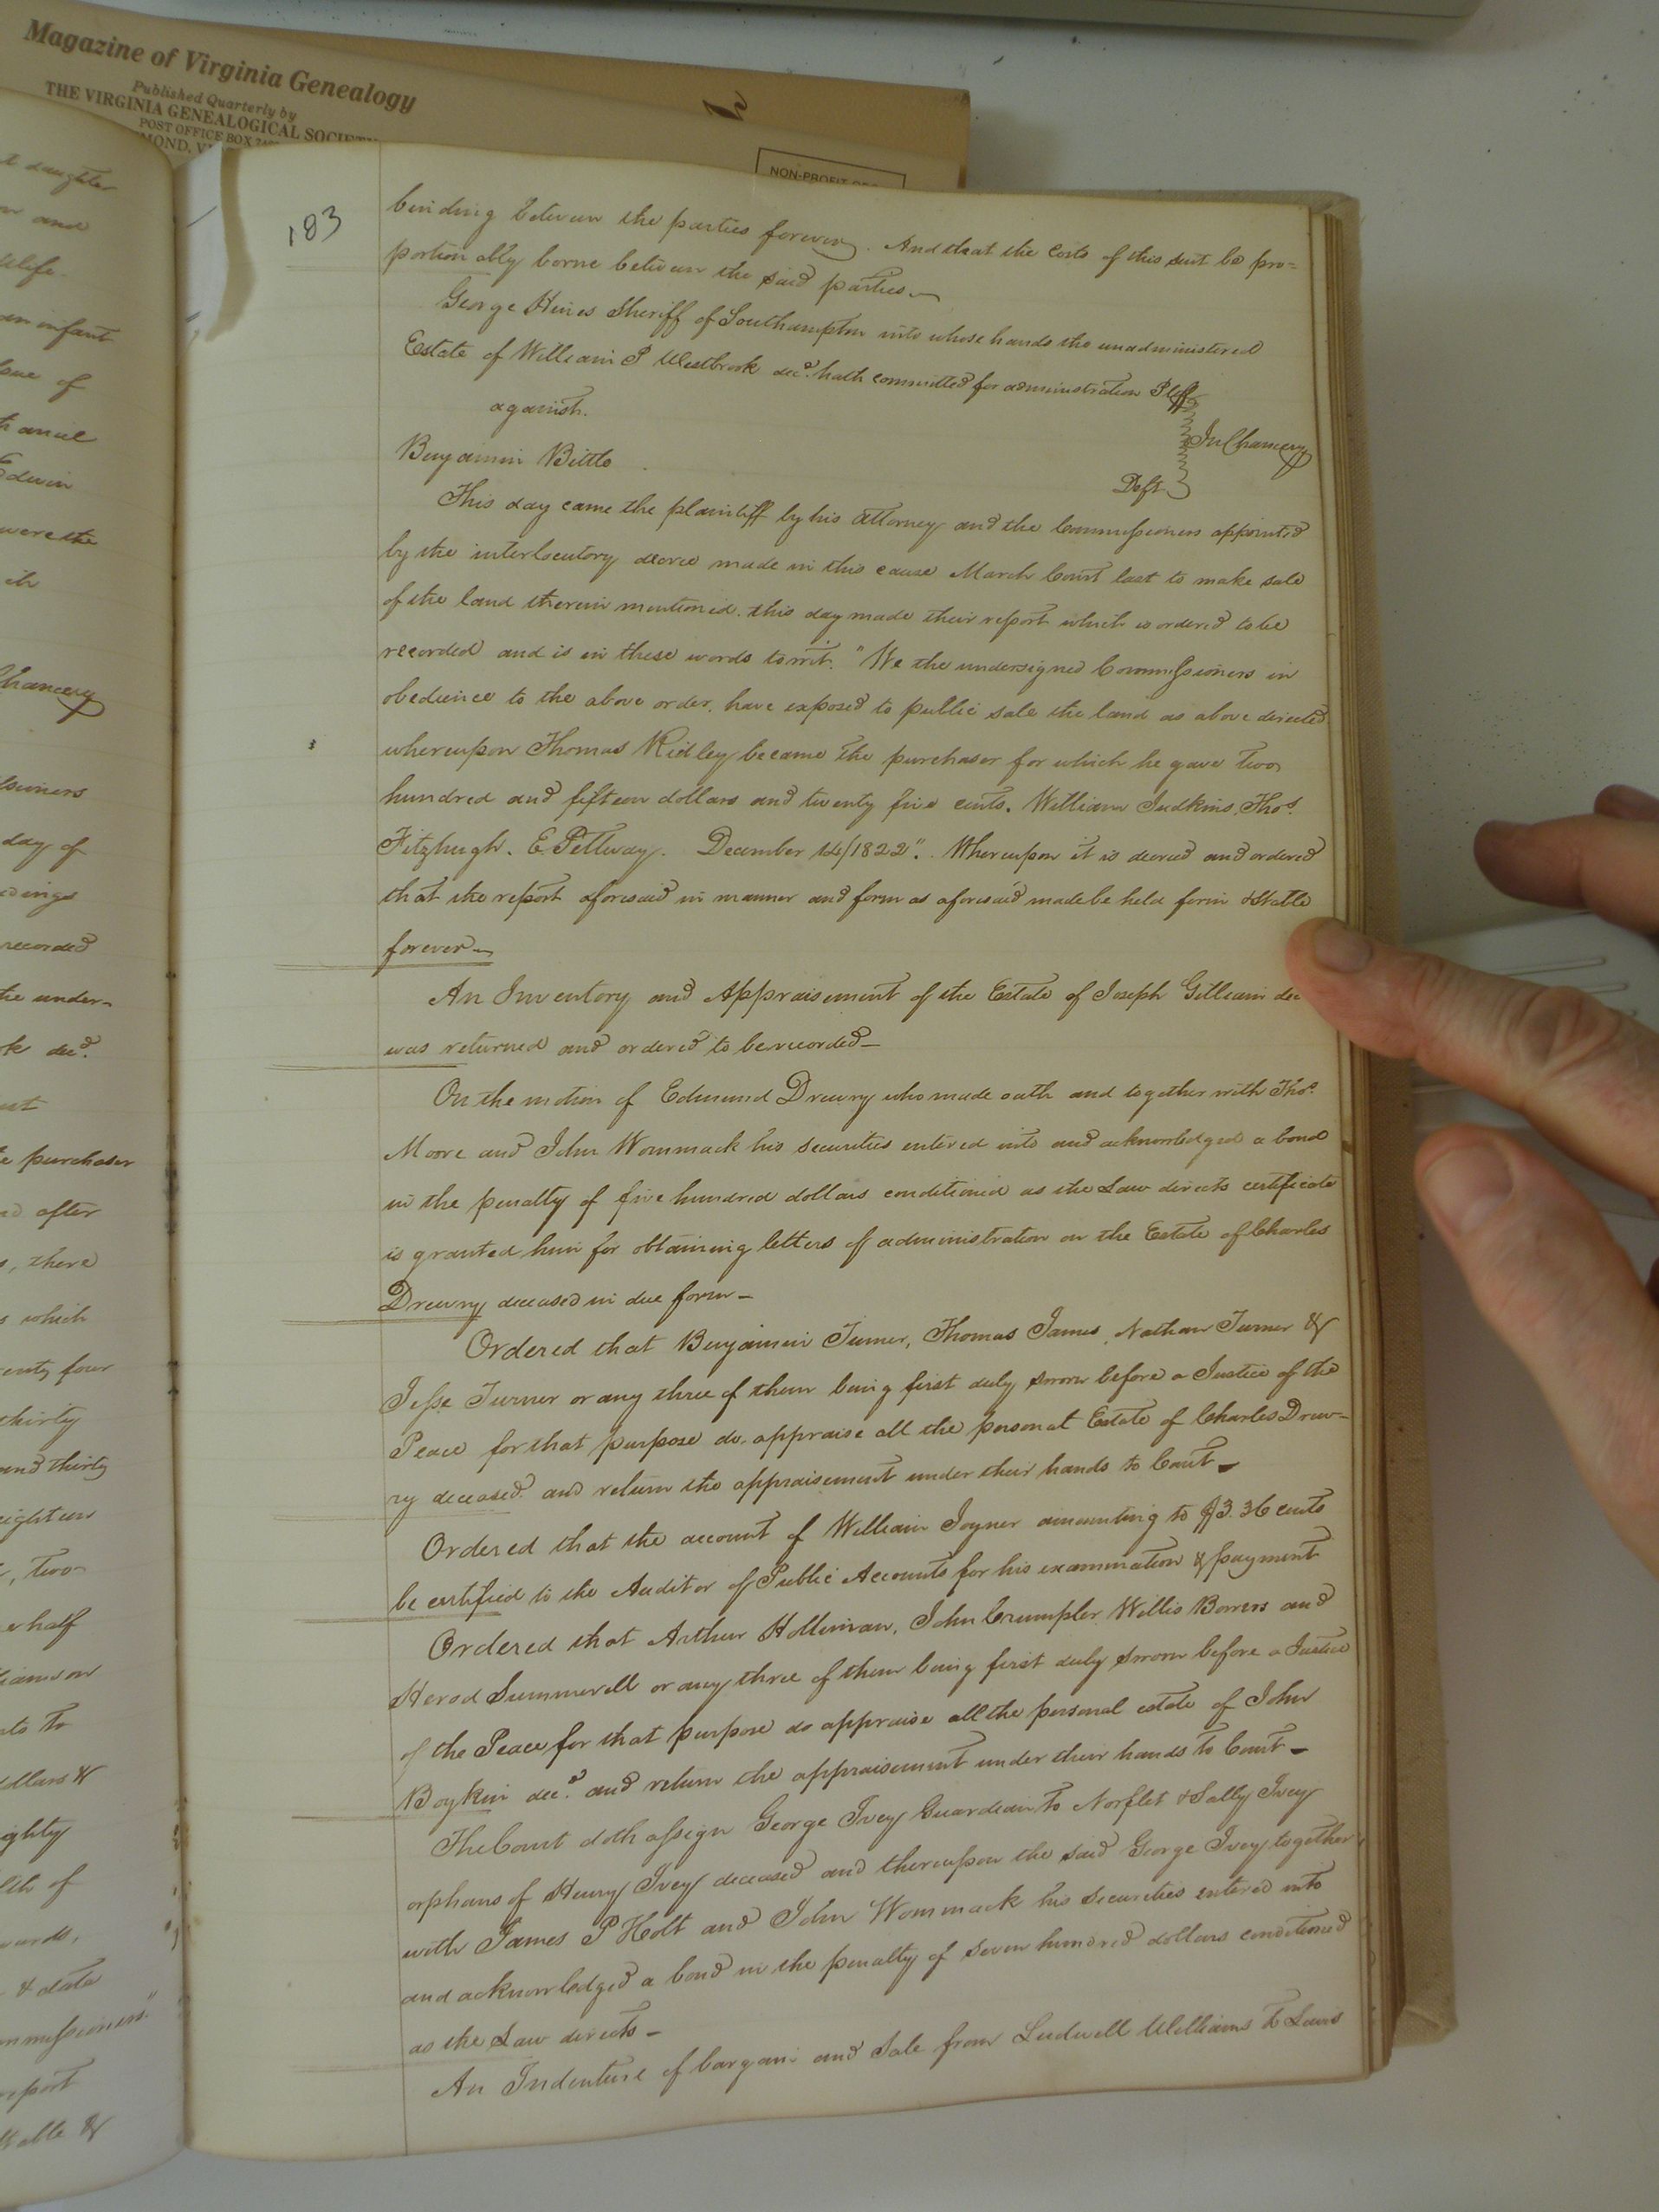 Magazine of Virginia Genealogy
Published Quarterly by
THE VIRGINIA GENEALOGICAL SOCIETY
POST OFFICE BOX
NON-PROFIT ORG
183
binding between the parties forever. And that the costs of this suit be pro=
portionably borne between the said parties
George Hines Sheriff of Southampton into whose hands the unadministered
Estate of William P Westbrook decd. hath committed for administration Pltff
against.
In Chancery
Benjamin Bittle
Deft
This day came the plaintiff by his attorney and the Commissioners appointed
by the interlocutory decree made in this cause March Court last to make sale
of the land therein mentioned. this day made their report which is ordered to be
recorded and is in these words towit. "We the undersigned Commissioners in
obedience to the above order, have exposed to public sale the land as above directed
whereupon Thomas Ridley became the purchaser for which he gave two
hundred and fifteen dollars and twenty five cents. William Judkins, Thos.
Fitzhugh. E. Pettway. December 14/1822". Whereupon it is decreed and ordered
that the report aforesaid in manner and form as aforesaid made be held firm & stable
forever
An Inventory and Appraisement of the Estate of Joseph Gilliam dec
was returned and ordered to be recorded
On the motion of Edmund Drewry who made oath and together with Thos.
Moore and John Wommack his securities entered into and acknowledged a bond
in the penalty of five hundred dollars conditioned as the Law directs certificate
is granted him for obtaining letters of administration on the Estate of Charles
Drewry deceased in due form
Ordered that Benjamin Turner, Thomas James, Nathan Turner &
Jesse Turner or any three of them being first duly sworn before a Justice of the
Peace for that purpose do. appraise all the personal Estate of Charles Drew-
ry deceased. and return the appraisement under their hands to Court
Ordered that the account of William Joyner amounting to $3.36 cents
be certified to the Auditor of Public Accounts for his examination & payment
Ordered that Arthur Holleman, John Crumpler, Willis Bowers and
Herod Summerell or any three of them being first duly sworn before a Justice
of the Peace for that purpose do appraise all the personal estate of John
Boykin decd. and return the appraisement under their hands to Court
The Court doth assign George Ivey Guardian to Norflet & Sally Ivey
orphans of Henry Ivey deceased and thereupon the said George Ivey together
with James P Holt and John Wommack his Securities entered into
and acknowledged a bond in the penalty of seven hundred dollars conditioned
as the Law directs
An Indenture of bargain and Sale from Ludwell Williams to Lewis